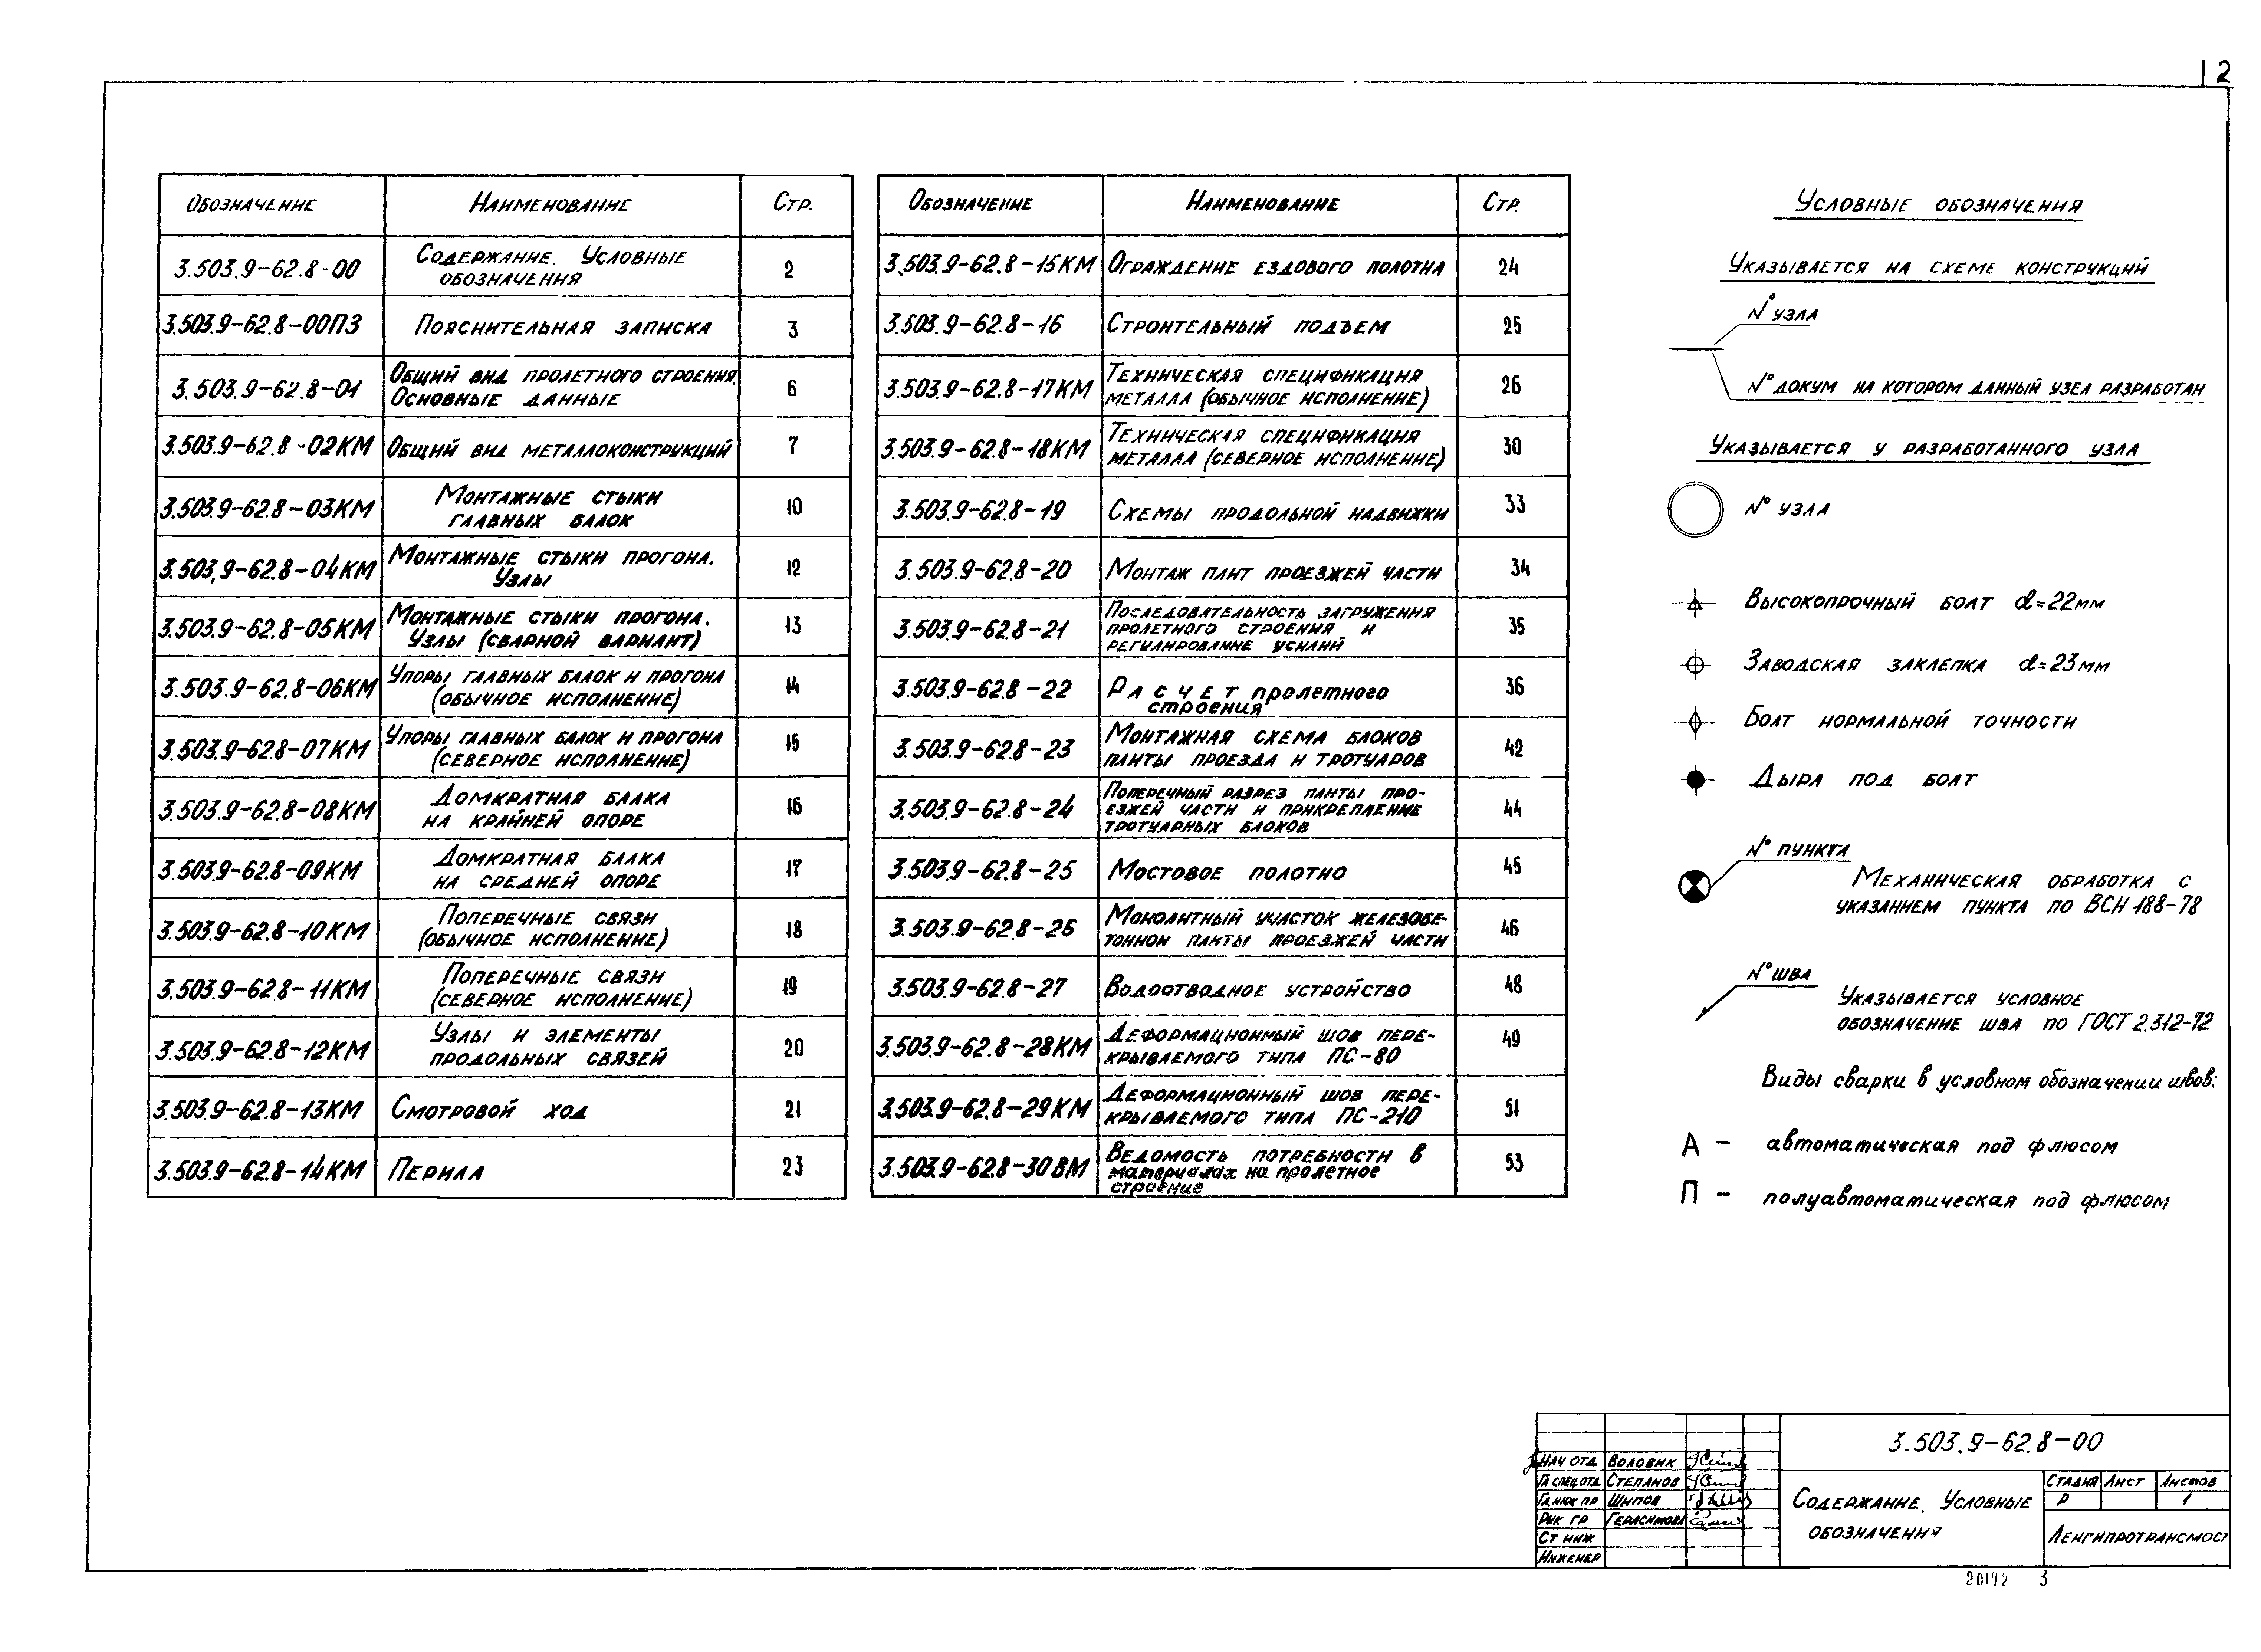 2
Обозначение Наименование Стр.
3.503.9-62.8-00 Содержание. Условные
обозначения 2
3.503.9-62.8-00ПЗ Пояснительная записка 3
3.503.9-62.8-01 Общий вид пролетного строения.
Основные данные 6
3.503.9-62.8-02КМ Общий вид металлоконструкций 7
3.503.9-62.8-03КМ Монтажные стыки
главных балок 10
3.503.9-62.8-04КМ Монтажные стыки прогона.
Узлы 12
3.503.9-62.8-05КМ Монтажные стыки прогона.
Узлы (сварной вариант) 13
3.503.9-62.8-06КМ Упоры главных балок и прогона
(обычное исполнение) 14
3.503.9-62.8-07КМ Упоры главных балок и прогона
(северное исполнение) 15
3.503.9-62.8-08КМ Домкратная балка
на крайней опоре 16
3.503.9-62.8-09КМ Домкратная балка
на средней опоре 17
3.503.9-62.8-10КМ Поперечные связи
(обычное исполнение) 18
3.503.9-62.8-11КМ Поперечные связи
(северное исполнение) 19
3.503.9-62.8-12КМ Узлы и элементы
продольных связей 20
3.503.9-62.8-13КМ Смотровой ход 21
3.503.9-62.8-14КМ Перила 23
Обозначение Наименование Стр.
3.503.9-62.8-15КМ Ограждение ездового полотна 24
3.503.9-62.8-16 Строительный подъем 25
3.503.9-62.8-17КМ Техническая спецификация
металла (обычное исполнение) 26
3.503.9-62.8-18КМ Техническая спецификация
металла (северное исполнение) 30
3.503.9-62.8-19 Схемы продольной надвижки 33
3.503.9-62.8-20 Монтаж плит проезжей части 34
3.503.9-62.8-21 Последовательность загружения
пролетного строения и
регулирование усилий 35
3.503.9-62.8-22 Расчет пролетного
строения 36
3.503.9-62.8-23 Монтажная схема блоков
плиты проезда и тротуаров 42
3.503.9-62.8-24 Поперечный разрез плиты про-
езжей части и прикрепление
тротуарных блоков 44
3.503.9-62.8-25 Мостовое полотно 45
3.503.9-62.8-26 Монолитный участок железобе-
тонной плиты проезжей части 46
3.503.9-62.8-27 Водоотводное устройство 48
3.503.9-62.8-28КМ Деформационный шов пере-
крываемого типа ПС-80 49
3.503.9-62.8-29КМ Деформационный шов пере-
крываемого типа ПС-210 51
3.503.9-62.8-30ВМ Ведомость потребности в
материалах на пролетное
строение 53
Условные обозначения
Указывается на схеме конструкций
№ узла
№ докум на котором данный узел разработан
Указывается у разработанного узла
№ узла
Высокопрочный болт d=22мм
Заводская заклепка d=23мм
Болт нормальной точности
Дыра под болт
№ пункта
Механическая обработка с
указанием пункта по ВСН 188-78
№ шва
Указывается условное
обозначение шва по ГОСТ 2.312-72
Виды сварки в условном обозначении швов:
А - автоматическая под флюсом
П - полуавтоматическая под флюсом
3.503.9-62.8-00
Нач отд Воловик
Гл спец отд Степанов
Гл инж пр Шипов
Рук гр Герасимова
Ст инж
Инженер
Содержание. Условные
обозначения
Стадия Лист Листов
Р 1
Ленгипротрансмост
20172 3